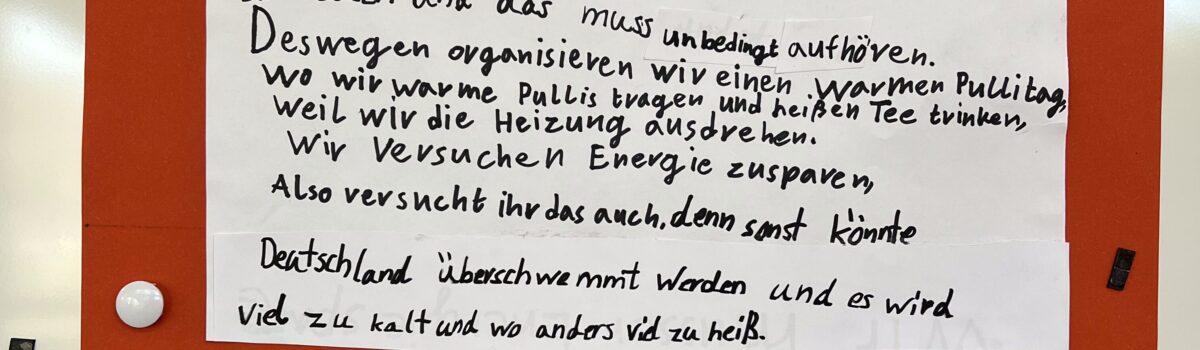 und das muss unbedingt aufhören.
Deswegen organisieren wir einen warmen Pullitag,
wo wir warme Pullis tragen und heißen Tee trinken,
weil wir die Heizung ausdrehen.
Wir versuchen Energie zusparen,
Also versucht ihr das auch, denn sonst könnte
Deutschland überschwemmt werden und es wird
viel zu kalt und wo anders viel zu heiß.